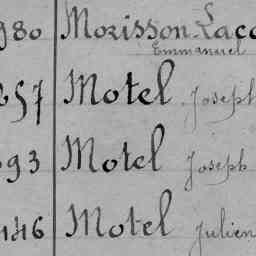 980 Morisson Laco
Emmanuel
257 Motel Joseph
693 Motel Joseph
1446 Motel Julien